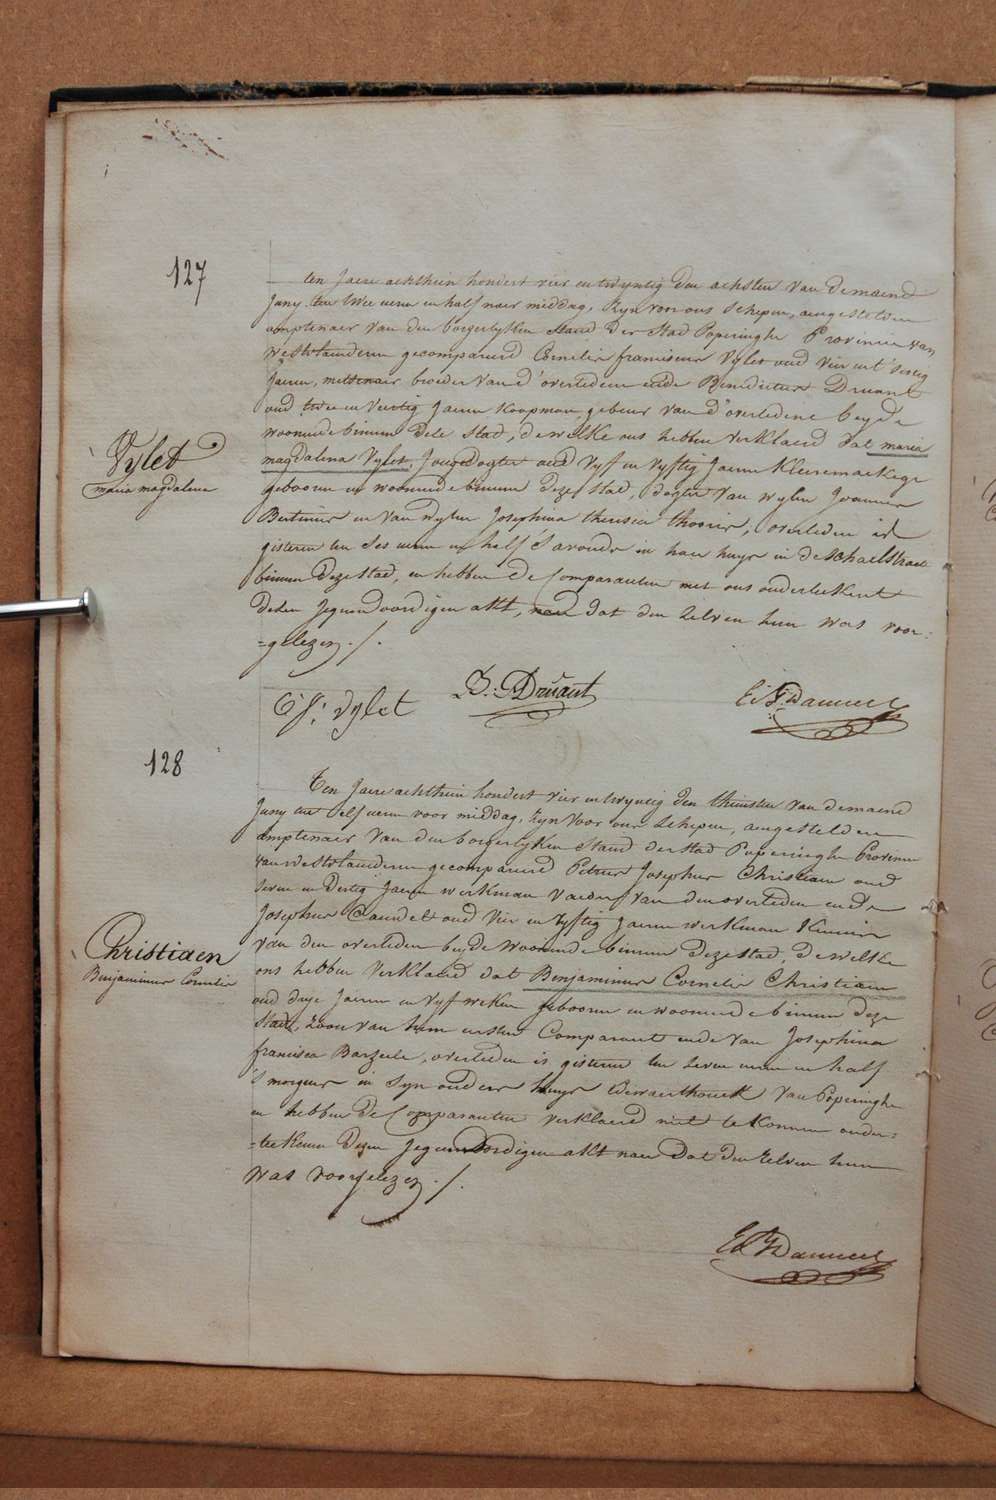 127
ten Jaere achthien hondert vier en twyntig den achsten van de maend
Juny ten twee uren en half naer middag, Zyn voor ons Schepen, aengestelden
amptenaer van den borgerlyken Stand der Stad Poperinghe Provincie van
Westvlanderen gecompareerd Cornelis franciscus Vylet oud vier en t'sestig
Jaeren, mettenaer broeder van d'overledene ende Benedictus Druant
oud twee en veertig Jaeren Koopman gebeur van d'overledene beyde
woonende binnen deze Stad, de welke ons hebben verklaerd dat maria
magdalena Vylet, Jongedogter oud vyf en vyftig Jaeren Kleermaekege
gebooren en woonende binnen deze Stad, dogter van wylen Joannes
en van wylen Josephina theresia thooris, overleden is
gisteren ten ses uren en half s'avonds in haer huys in de schaelstraet
binnen deze Stad, en hebben de Comparanten met ons onderteekent
dezen Jegenwoordigen akt, naer dat den zelven hun was voor:
=gelezen ./.
Vylet
maria magdalena
C: f: Vylet B: Druant
128
Ten Jaere achthien hondert vier en twyntig den thiensten van de maend
Juny ten elf uren voor middag, Zyn voor ons Schepen, aengestelden
amptenaer van den borgerlyken Stand der Stad Poperinghe Provincie
van Westvlanderen gecompareerd Petrus Josephus Christiaen oud
seven en dertig Jaeren werkman vader van den overleden ende
Josephus Candel oud vier en vyftig Jaeren werkman Kennis
van den overleden beyde woonende binnen deze Stad, de welke
ons hebben verklaerd dat Benjaminus Cornelis Christiaen
oud drye Jaeren en vyf weken gebooren en woonende binnen deze
Stad, Zoon van hem eersten Comparant ende van Josephina
francisca Barzeele, overleden is gisteren ten zeven uren en half
's morgens in syn ouders huys van Poperinghe
en hebben de Comparanten verklaerd niet te Konnen onder:
=teekenen dezen Jegenwoordigen akt naer dat den zelven hun
was voorgelezen ./.
Christiaen
Benjaminus Cornelis